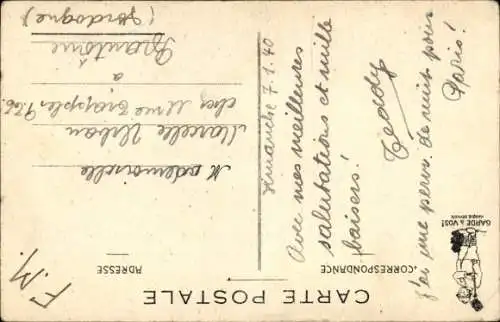 CARTE POSTALE
CORRESPONDANCE
ADRESSE
F.M.
Dimanche 7.1.40
Avec mes meilleures
salutations et mille
baisers!
Teddy
J'ai une perm. de nuit pour
Paris!
Mademoiselle
Marcelle Urban
chez Mme
à
Brantôme
(Dordogne)
GARDE À VOS!